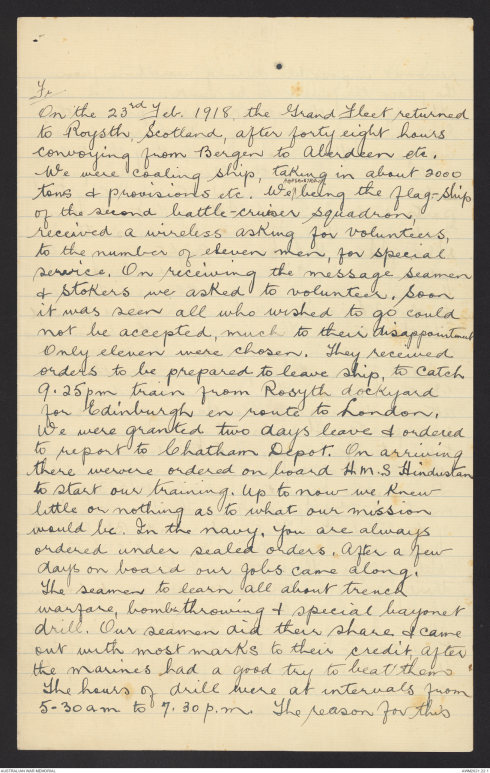 On the 23rd Feb. 1918, the Grand Fleet returned
to Roysth, Scotland, after forty eight hours
convoying from Bergen to Aberdeen etc.
We were coaling ship, taking in about 2000
tons & provisions etc. We being the flag-ship
of the second battle-cruiser squadron,
received a wireless asking for volunteers,
to the number of eleven men, for special
service. On receiving the message seamen
& stokers we asked to volunteer. Soon
it was seen all who wished to go could
not be accepted, much to their disappointment
Only eleven were chosen. They received
orders to be prepared to leave ship, to catch
9.25pm train from Rosyth dockyard
for Edinburgh en route to London.
We were granted two days leave & ordered
to report to Chatham Depot. On arriving
there werwere ordered on board H.M.S Hindustan
to start our training. Up to now we knew
little or nothing as to what our mission
would be. In the navy, you are always
ordered under sealed orders. After a few
days on board our jobs came along.
The seamen to learn all about trench
warfare, bombthrowing & special bayonet
drill. Our seamen did their share & came
out with most marks to their credit, after
the marines had a good try to beat them
The hours of drill were at intervals from
5-30am to 7.30p.m. The reason for this
AUSTRALIAN WAR MEMORIAL